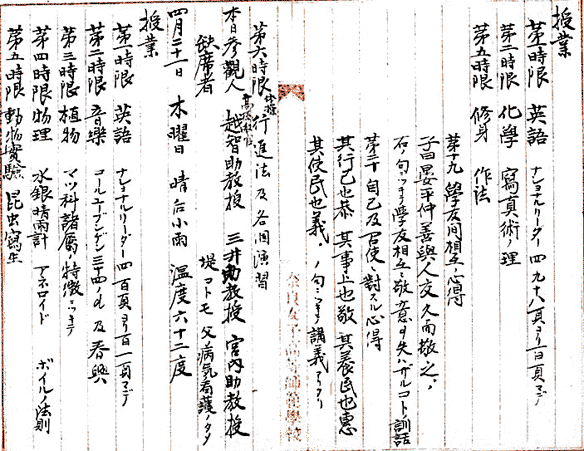 授業
第一時限 英語 ナショナルリーダー四 九十八頁ヨリ百一頁マデ
第二時限 化學 寫真術ノ理
第五時限 修身 作法
第十九 學友間相互ノ心得
子曰晏平仲善與人交久而敬之、
石ノ句ニツキテ學友相互ニ敬意ヲ失ハザルコトノ訓話
第二十 自己及召使ニ對スル心得
其行己也恭 其事上也敬 其養民也惠
其使民也義、ノ句ニツキ講義アリタリ
奈良女子高等師範學校
第六時限 体操 行進法及各個演習
本日參觀人 越智助教授 三井助教授 宮内助教授
缺席者 堤コトモ 父病気看護ノタメ
四月二十一日 木曜日 晴后小雨 温度六十二度
授業
第一時限 英語 ナショナルリーダー四 百頁ヨリ百一頁マデ
第二時限 音樂 コールユーブンゲン三十四ノd 及春興
第三時限 植物 マツ科諸屬ノ特徴ニツキテ
第四時限 物理 水銀晴雨計 アネロイド ボイルノ法則
第五時限 動物實驗 昆虫寫生